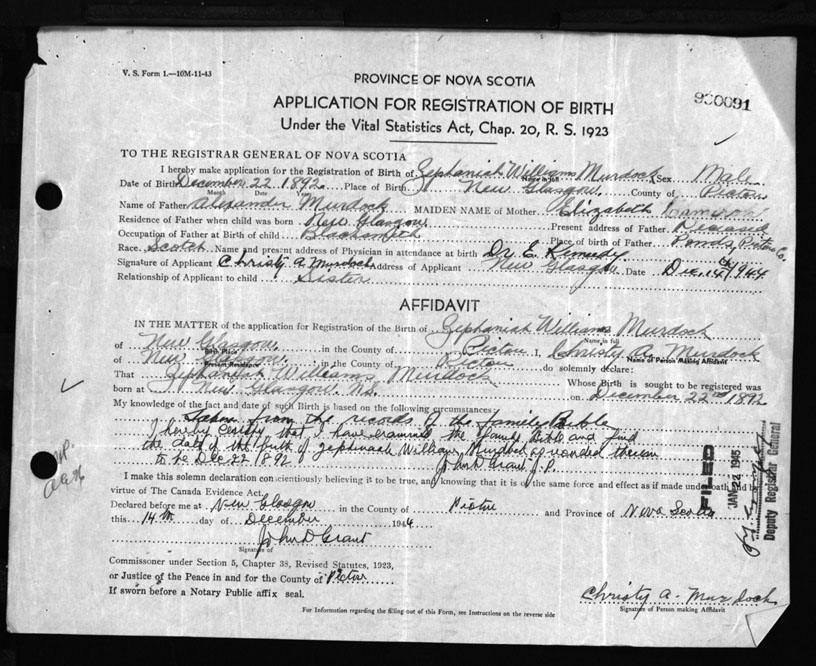 V. S. Form 1.—10M-11-43
PROVINCE OF NOVA SCOTIA
930091
APPLICATION FOR REGISTRATION OF BIRTH
Under the Vital Statistics Act, Chap. 20, R. S. 1923
TO THE REGISTRAR GENERAL OF NOVA SCOTIA
I hereby make application for the Registration of Birth of Zephaniah Williams Murdock Sex Male
Name in full
Date of Birth December 22 1892 Place of Birth New Glasgow County of Pictou
Month Date Year
Name of Father Alexander Murdock MAIDEN NAME of Mother Elizabeth Cameron
Residence of Father when child was born New Glasgow Present address of Father Deceased
Occupation of Father at Birth of child Blacksmith Place of birth of Father Ponds Pictou Co.
Race Scotch Name and present address of Physician in attendance at birth Dr. E. Kennedy
Signature of Applicant Christy A Murdock address of Applicant New Glasgow Date Dec. 14th/1944
Relationship of Applicant to child Sister
AFFIDAVIT
IN THE MATTER of the application for Registration of the Birth of Zephaniah Williams Murdock
Name in full
of New Glasgow in the County of Pictou I, Christy A. Murdock
Birth Place Name of Person Making Affidavit
of New Glasgow in the County of Pictou do solemnly declare:
Present Residence
That Zephaniah Williams Murdock Whose Birth is sought to be registered was
born at New Glasgow N.S. on December 22nd 1892
My knowledge of the fact and date of such Birth is based on the following circumstances:
Taken from the records of the families Bible
I hereby certify that I have examined the family Bible and find
the date of the birth of Zephinaah William Murdock as recorded therein
to be Dec 22 1892 John D Grant J.P.
I make this solemn declaration conscientiously believing it to be true, and knowing that it is of the same force and effect as if made under oath and by
virtue of The Canada Evidence Act.
Declared before me at New Glasgow in the County of Pictou and Province of Nova Scotia
this 14th day of December 1944
John D Grant
Signature of
Commissioner under Section 5, Chapter 38, Revised Statutes, 1923,
or Justice of the Peace in and for the County of Pictou
If sworn before a Notary Public affix seal.
Christy A. Murdock
Signature of Person making Affidavit
For Information regarding the filling out of this Form, see Instructions on the reverse side
FILED
JAN 22 1945
Deputy Registrar General